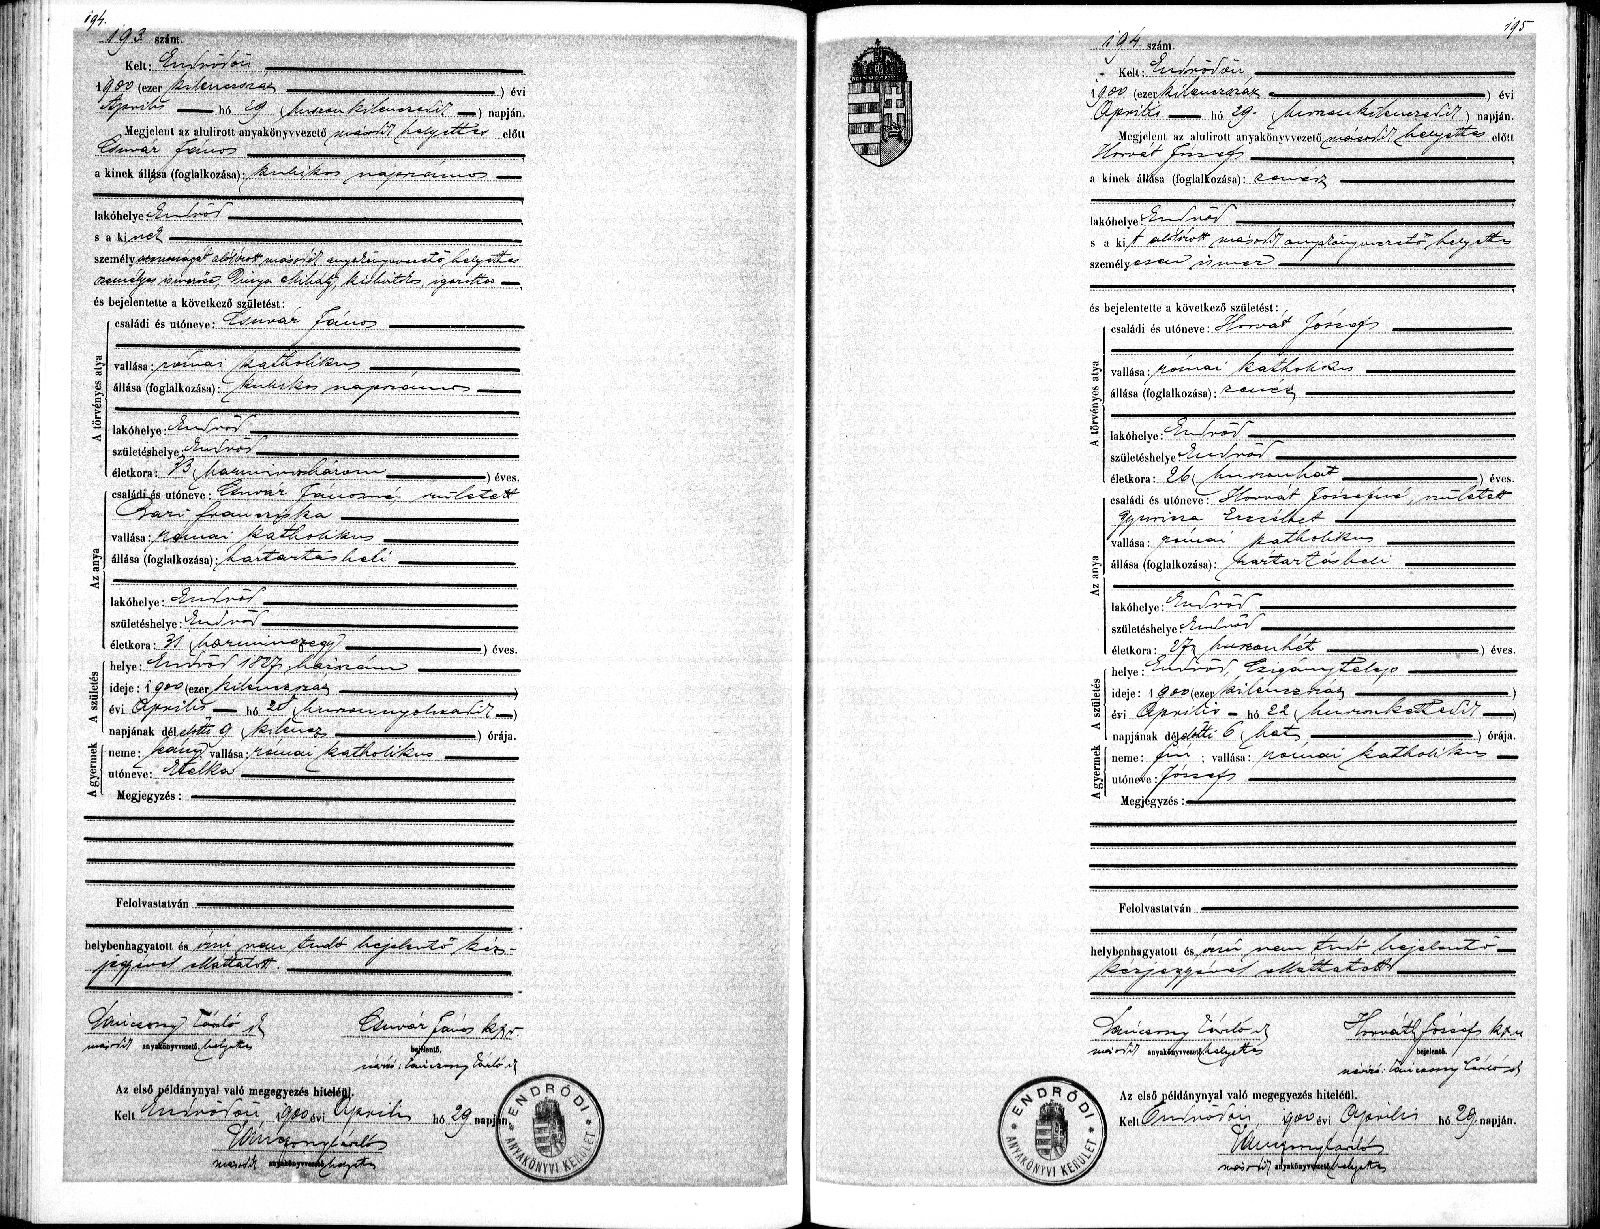 194.
193 szám.
Kelt: Endrődön
1900 (ezer kilenczszáz) évi
Április hó 29 (huszonkilenczedik) napján.
Megjelent az alulirott anyakönyvvezető másodk helyettes előtt
Csuvár János
a kinek állása (foglalkozása): kubikos napszámos
lakóhelye Endrőd
s a kinek
személyazonosságát alólírott másodk anyakönyvvezető helyettes
személyes ismerőse, Mihály, kisbirtokos, igazolta
és bejelentette a következő születést:
A törvényes atya
családi és utóneve: Csuvár János
vallása: római katholikus
állása (foglalkozása): kubikos napszámos
lakóhelye: Endrőd
születéshelye Endrőd
életkora: 33 (harminczhárom) éves.
Az anya
családi és utóneve: Csuvár Jánosné, született
Bari Francziska
vallása: római katholikus
állása (foglalkozása): háztartásbeli
lakóhelye: Endrőd
születéshelye: Endrőd
életkora: 31 (harminczegy) éves.
A születés
helye: Endrőd 1827 házszám
ideje: 1900 (ezer kilenczszáz)
évi Április hó 28 (huszonnyolczadik)
napjának délelőtti 9 (kilencz) órája.
A gyermek
neme: leány vallása: római katholikus
utóneve: Etelka
Megjegyzés:
Felolvastatván
helybenhagyatott és írni nem tudó bejelentő kéz-
jegyével elláttatott.
másodk anyakönyvvezető helyettes
Csuvár János
bejelentő.
Az első példánynyal való megegyezés hiteléül.
Kelt Endrődön 1900 évi Április hó 29 napján
másodk anyakönyvvezető helyettes
ENDRŐDI
ANYAKÖNYVI KERÜLET
195
194 szám.
Kelt: Endrődön
1900 (ezer kilenczszáz) évi
Április hó 29. (huszonkilenczedik) napján.
Megjelent az alulirott anyakönyvvezető másodk helyettes előtt
Horvát József
a kinek állása (foglalkozása): zenész
lakóhelye Endrőd
s a kit alólírott másodk anyakönyvvezető helyettes
személyesen ismer
és bejelentette a következő születést:
A törvényes atya
családi és utóneve: Horvát József
vallása: római katholikus
állása (foglalkozása): zenész
lakóhelye: Endrőd
születéshelye Endrőd
életkora: 26 (huszonhat) éves.
Az anya
családi és utóneve: Horvát Józsefné, született
Gyuricza Erzsébet
vallása: római katholikus
állása (foglalkozása): háztartásbeli
lakóhelye: Endrőd
születéshelye: Endrőd
életkora: 27 (huszonhét) éves.
A születés
helye: Endrőd, Czigánytelep
ideje: 1900 (ezer kilenczszáz)
évi Április hó 22 (huszonkettedik)
napjának délelőtti 6 (hat) órája.
A gyermek
neme: fiú; vallása: római katholikus
utóneve: József
Megjegyzés:
Felolvastatván
helybenhagyatott és írni nem tudó bejelentő
kézjegyével elláttatott
másodk anyakönyvvezető helyettes
Horváth József
bejelentő.
Az első példánynyal való megegyezés hiteléül.
Kelt Endrődön, 1900 évi Április hó 29 napján.
másodk anyakönyvvezető helyettes
ENDRŐDI
ANYAKÖNYVI KERÜLET